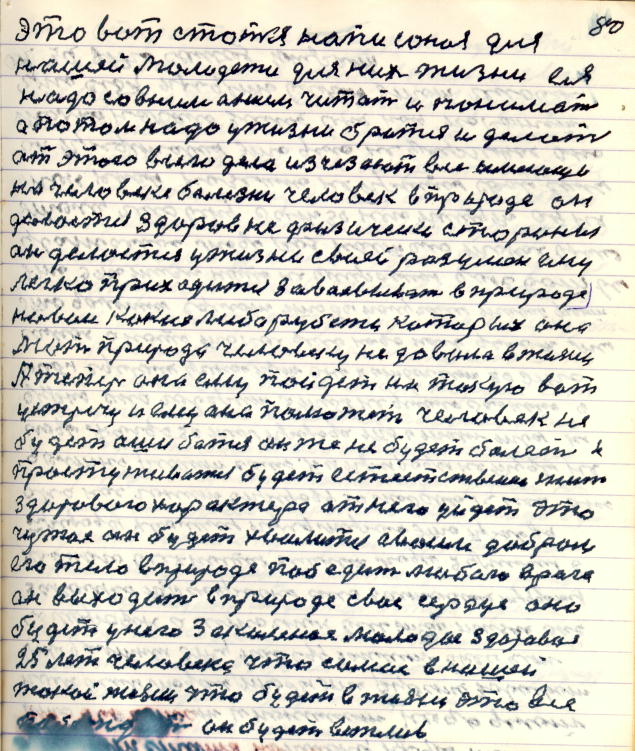 80
Это вот стотия написоная для
нашей молодежи для них жизни ея
надо совсим аним читат и понимат
а потом надо ужизни братия и делат
ат этого всего дела изчезают все
на человеке балезни человек в природе он
делаетия здоров не физически стораны
ан делоетия ужизни своей разумен ему
легко приходития заваевыват в природе
новаи какие либа рубежи каторых она
Мат природа человеку не давала в жизни
А тепер она ему пойдет на такую вот
устречу и ему ана поможет человек не
будет ашибатся он же не будет балеть и
простуживатия будет естественаи
здаровога характера ат него уйдет это
чужое он будет хвалитя сваим добром
его тело в природе победит любого врага
он выходит в природе свае сердце оно
будет у него закаленое молодое здаровое
25 лет человека что самое в нашей
такой жизни это будет в жизни это все
он будет вежлив